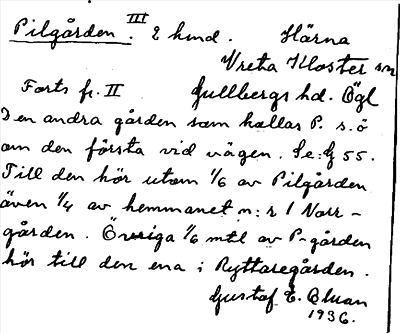 Pilgården. III 2 hmd. Härna
Vreta Kloster sn
Forts fr. II Gullbergs hd. Ögl
Den andra gården som kallas P. s.ö
om den första vid vägen. Se: G 55.
Till den hör utom 1/6 av Pilgården
även 1/4 av hemmanet n:r 1 Norr-
gården. Övriga 1/6 mtl av P-gården
hör till den ena i Ryttaregården.
Gustaf E. Bluan
1936.